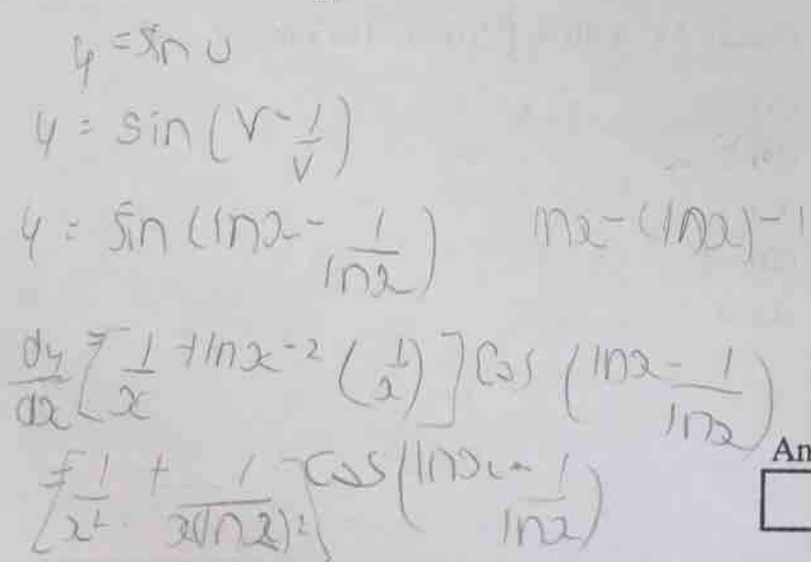 y = sin u
y = sin (v - 1/v)
y = sin (lnx - 1/lnx) lnx - (lnx)^-1
dy/dx = [1/x + lnx^-2 (1/x)] cos (lnx - 1/lnx)
= [1/x^2 + 1/x(lnx)^2] cos (lnx - 1/lnx)
An